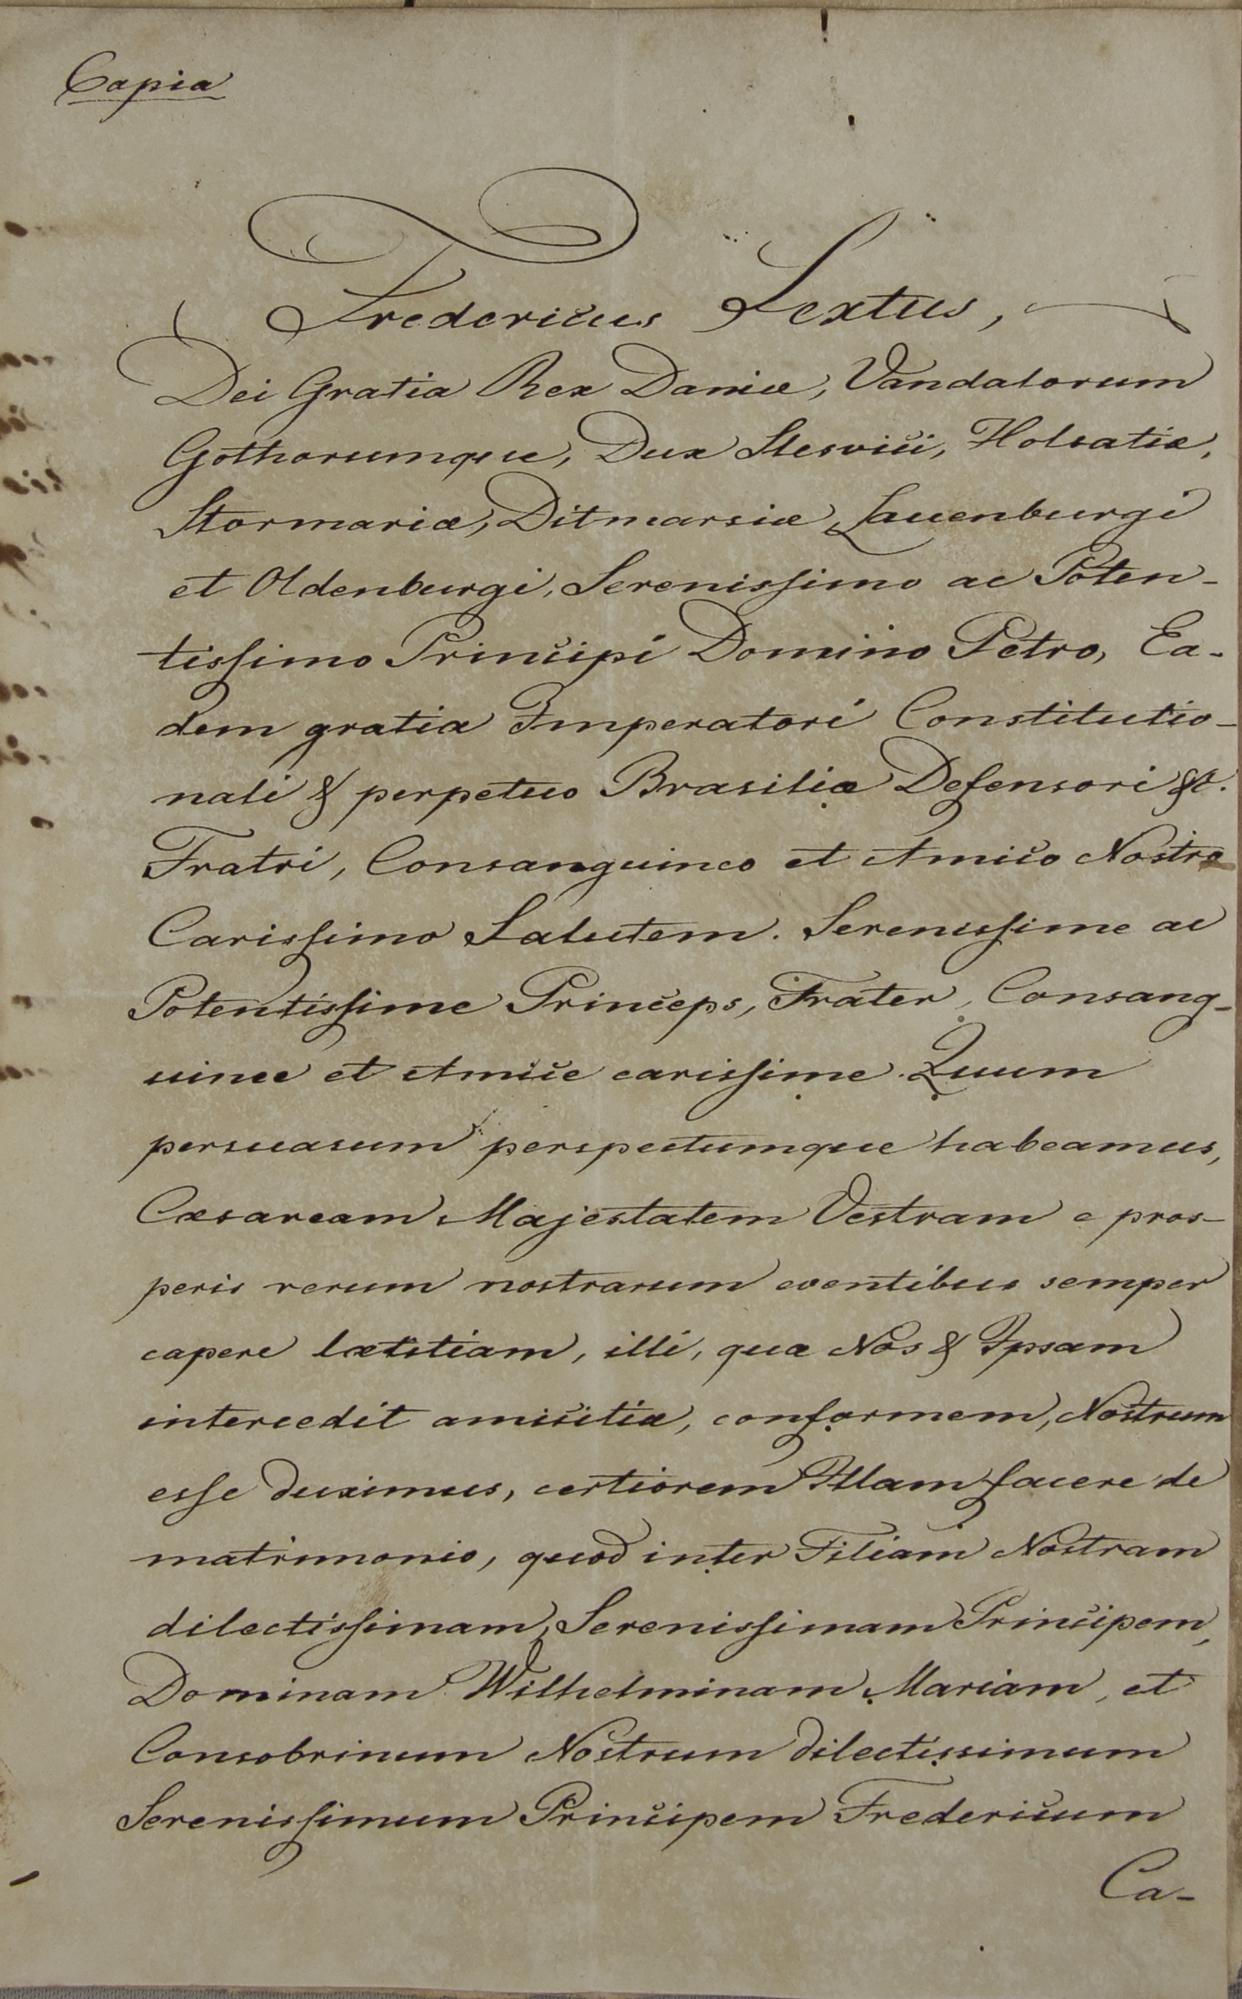 Copia
Fredericus Sextus,
Dei Gratia Rex Daniæ, Vandalorum
Gothorumque, Dux Slesvici, Holsatiæ,
Stormariæ, Ditmarsiæ, Lauenburgi
et Oldenburgi, Serenissimo ac Poten-
tissimo Principi Domino Petro, Ea-
dem gratia Imperatori Constitutio-
nali & perpetuo Brasiliæ Defensori &c.
Fratri, Consanguineo et Amico Nostro
Carissimo Salutem. Serenissime ac
Potentissime Princeps, Frater, Consang-
uinee et Amice carissime. Quum
persuasum perspectumque habeamus,
Cæsaream Majestatem Vestram e pros-
peris rerum nostrarum eventibus semper
capere lætitiam, illi, quæ Nos & Ipsam
intercedit amicitiæ, conformem, Nostrum
esse duximus, certiorem Illam facere de
matrimonio, quod inter Filiam Nostram
dilectissimam, Serenissimam Principem,
Dominam Wilhelminam Mariam, et
Consobrinum Nostrum dilectissimum
Serenissimum Principem Fredericum
Ca-